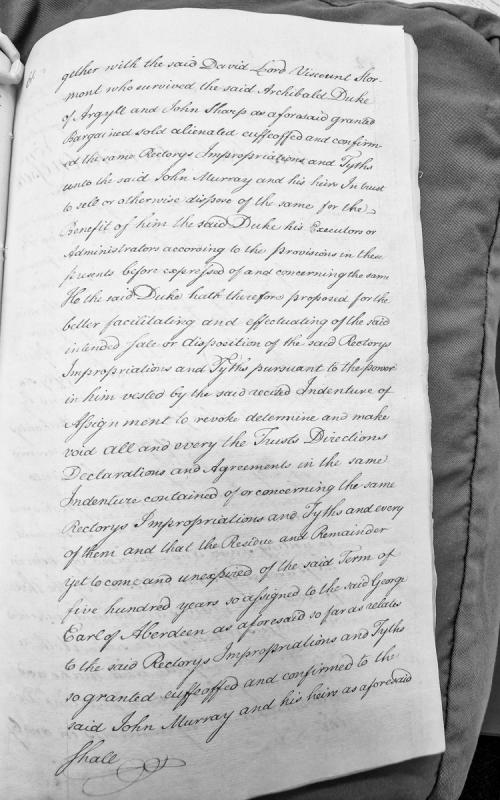 gether with the said David Lord Viscount Stor-
mont who survived the said Archibald Duke
of Argyll and John Sharp as aforesaid granted
Bargained sold alienated enffeoffed and confirm-
ed the same Rectorys Impropriations and Tyths
unto the said John Murray and his heirs In trust
to sell or otherwise dispose of the same for the
Benefit of him the said Duke his Executors or
Administrators according to the provisions in these
presents before expressed of and concerning the same
He the said Duke hath therefore proposed for the
better facilitating and effectuating of the said
intended sale or disposition of the said Rectorys
Impropriations and Tyths pursuant to the power
in him vested by the said recited Indenture of
Assignment to revoke determine and make
void all and every the Trusts Directions
Declarations and Agreements in the same
Indenture contained of or concerning the same
Rectorys Impropriations and Tyths and every
of them and that the Residue and Remainder
yet to come and unexpired of the said Term of
five hundred years so assigned to the said George
Earl of Aberdeen as aforesaid so far as relates
to the said Rectorys Impropriations and Tyths
so granted enffeoffed and confirmed to the
said John Murray and his heirs as aforesaid
Shall